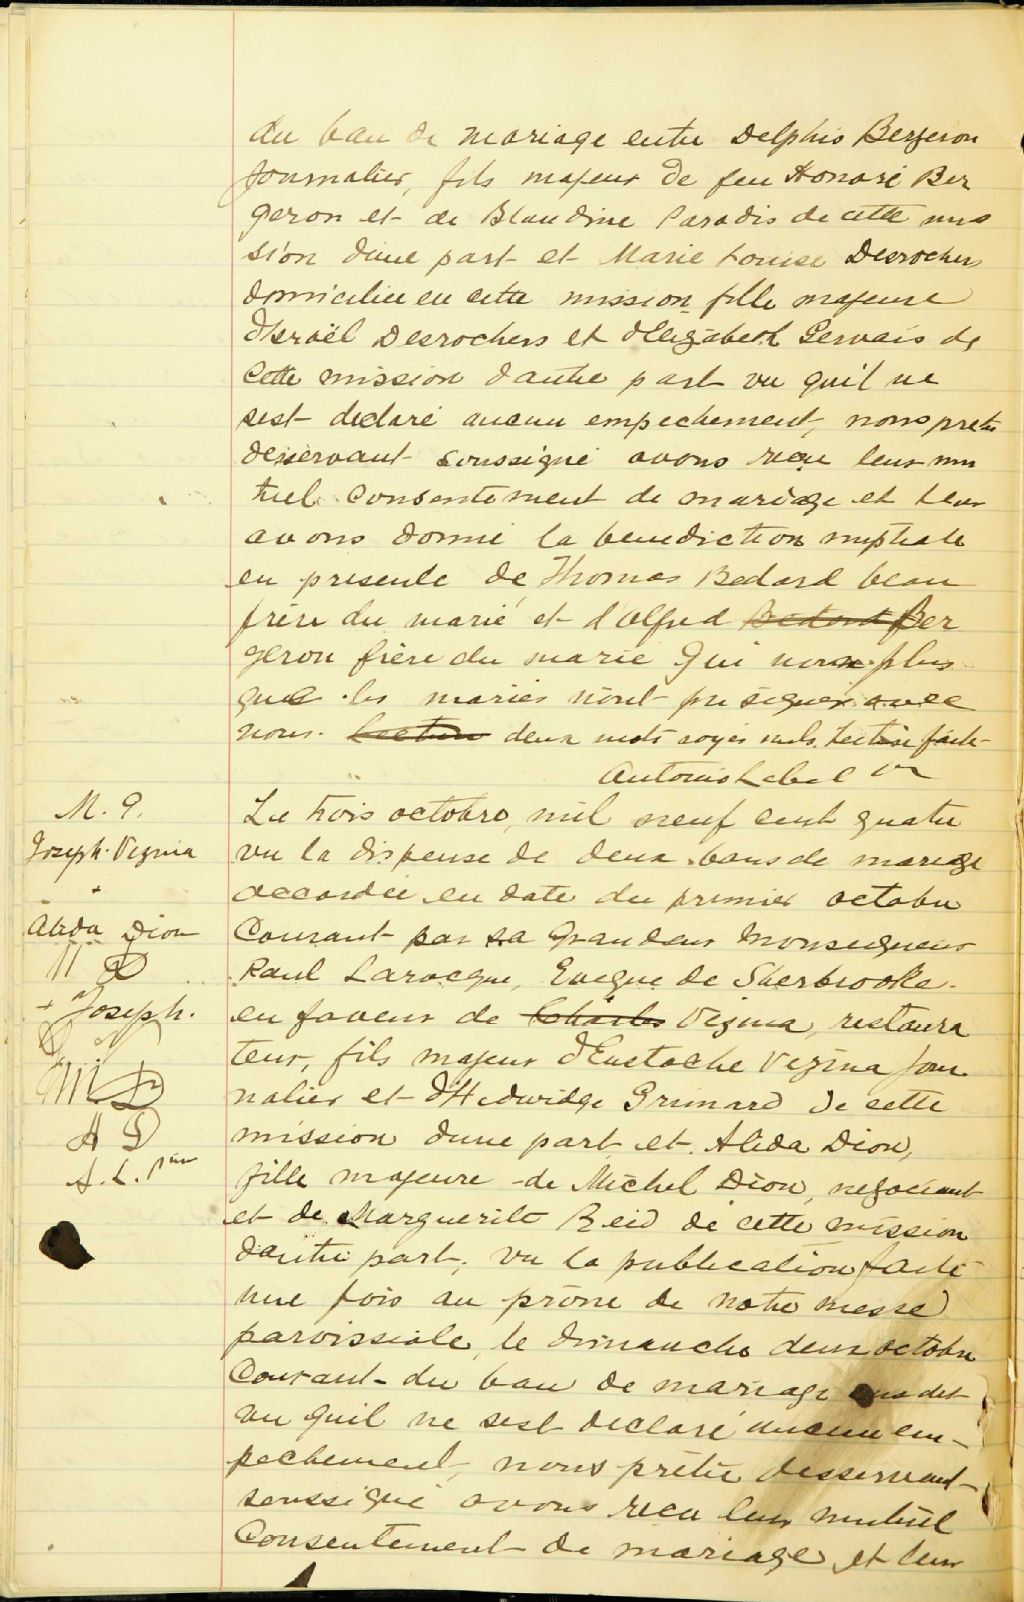 du ban de mariage entre Delphis Bergeron
journalier, fils majeur de feu Honoré Ber
geron et de Blandine Paradis de cette mis
sion d'une part et Marie Louise Desrochers
domiciliée en cette mission fille majeure
d'Israël Desrochers et d'Elizabeth Gervais de
cette mission d'autre part vu qu'il ne
s'est declaré aucun empechement, nous pretre
desservant soussigné avons reçu leur mu
tuel consentement de mariage et leur
avons donné la benediction nuptiale
en presence de Thomas Bedard beau
frère du marié et d'Alfred Bedard Ber
geron frère du marié qui non plus
que les mariés n'ont pu signer avec
nous. Lecture deux mots rayés nuls, lecture faite
Antonio Lebel
M. 9.
Joseph Vezina
+
Alida Dion
+ Joseph.
M D
A D
A. L. Ptre
Le trois octobre, mil neuf cent quatre
vu la dispense de deux bans de mariage
accordée en date du premier octobre
courant par sa Grandeur Monseigneur
Paul Larocque, Evêque de Sherbrooke
en faveur de Charles Vezina, restaura
teur, fils majeur d'Eustache Vezina jour
nalier et d'Hedwidge Grimard de cette
mission d'une part, et Alida Dion,
fille majeure de Michel Dion, negociant
et de Marguerite Reid de cette mission
d'autre part, vu la publication faite
une fois au prône de notre messe
paroissiale, le dimanche deux octobre
courant du ban de mariage susdit
vu qu'il ne s'est declaré aucun em-
pechement, nous prêtre desservant
soussigné avons reçu leur mutuel
consentement de mariage et leur